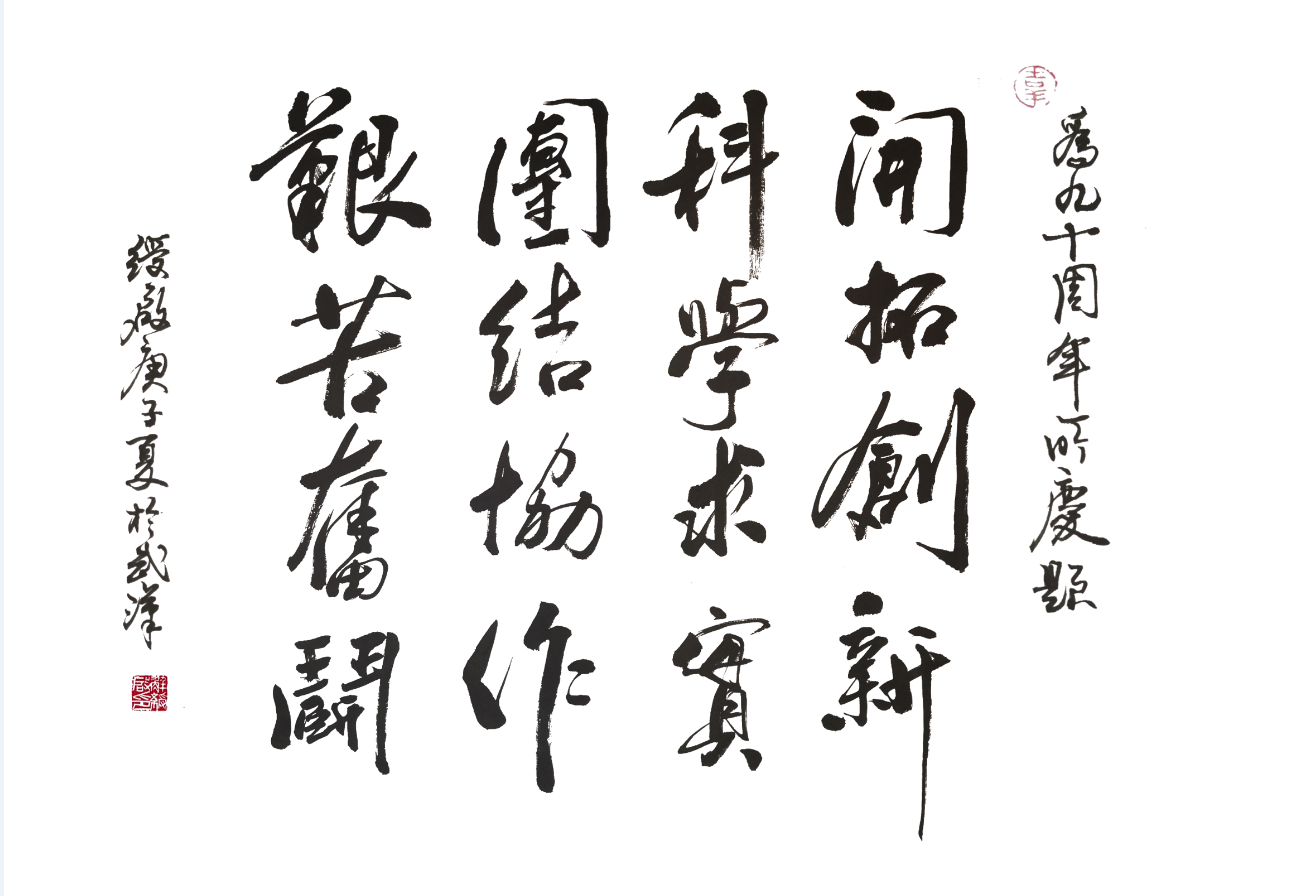 為九十周年所慶題
開拓創新
科學求實
團結協作
艱苦奮鬪
綬啟庚子夏於武漢